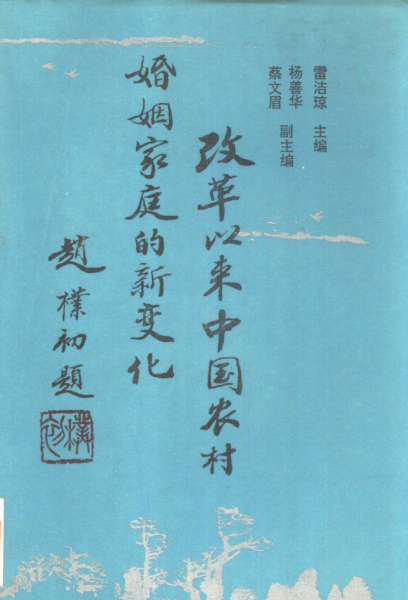 雷洁琼 主编
杨善华 副主编
蔡文眉
改革以来中国农村
婚姻家庭的新变化
趙樸初题
樸初